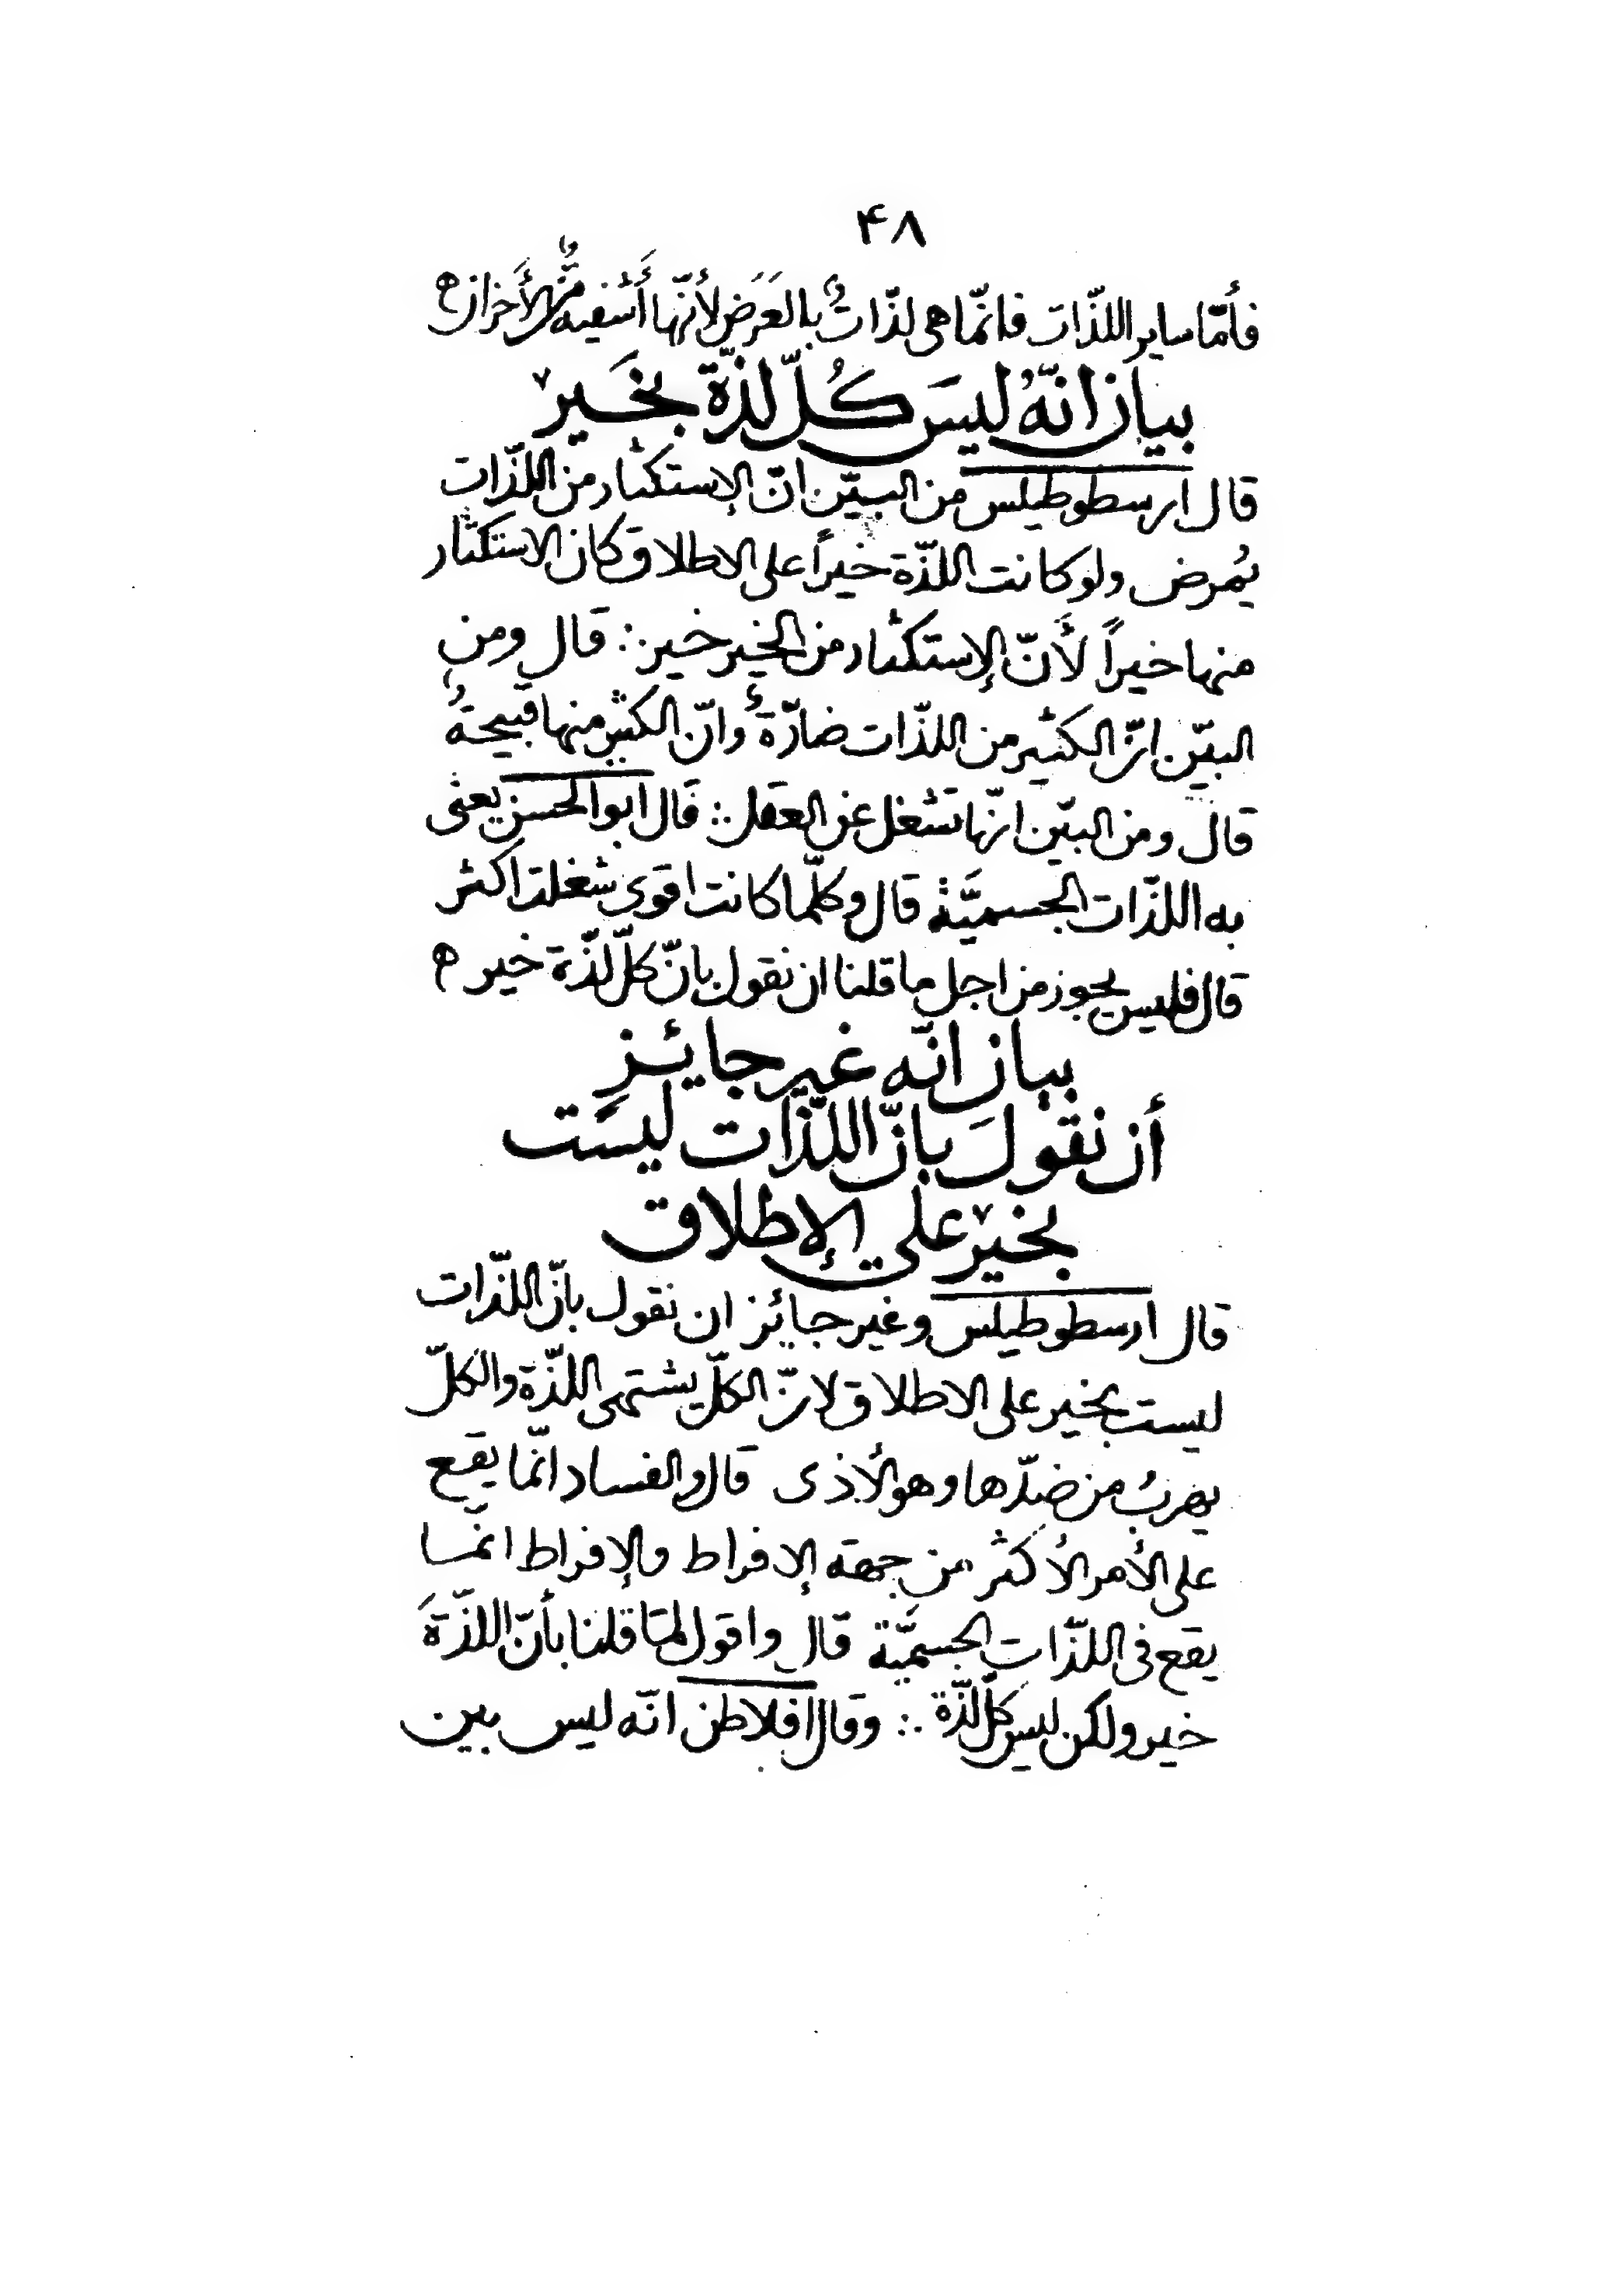 ۴۸
فأمّا ساير اللذّات فانمّا هى لذّاتٌ بالعَرَض لأنّها أَشفيه من الأَحزان ه
بيان انّه ليسَ كُلّ لذّة بخَير
قال ارسطوطيلس من البيّن انّ الإستكثار من اللذّات
يُمرض ولو كانت اللذّة خيراً على الاطلاق كان الاستكثار
منها خيراً لأَنّ الإستكثار من الخير خير ∴ قال ومن
البيّن انّ الكثير من اللذّات ضارّة وانّ الكثير منها قبيحةٌ
قال ومن البيّن انّها تشغل عن العقل ∴ قال ابو الحسن يعنى
به اللذّات الجسميَّة قال وكلّما كانت اقوى شغلت اكثر
قال فليس يجوز من اجل ما قلنا ان نقول بانّ كلّ لذّة خير ه
بيان انّه غير جايئز
أن نقولَ بانّ اللذّات ليست
بخير على الإطلاق
قال ارسطوطيلس وغير جايئز ان نقول بانّ اللذّات
ليست بخير على الاطلاق لانّ الكلّ يشتهى اللذّة والكلّ
يهربُ من ضدّها وهو الأذى قال والفساد انّما يقع
على الأمر الأكثر من جهة الإفراط والإفراط انّما
يقع فى اللذّات الجسميَّة قال واقول لمّا قلنا بأنّ اللذّةَ
خير ولكن ليس كلّ لذّة ∴ وقال افلاطن انّه ليس بين